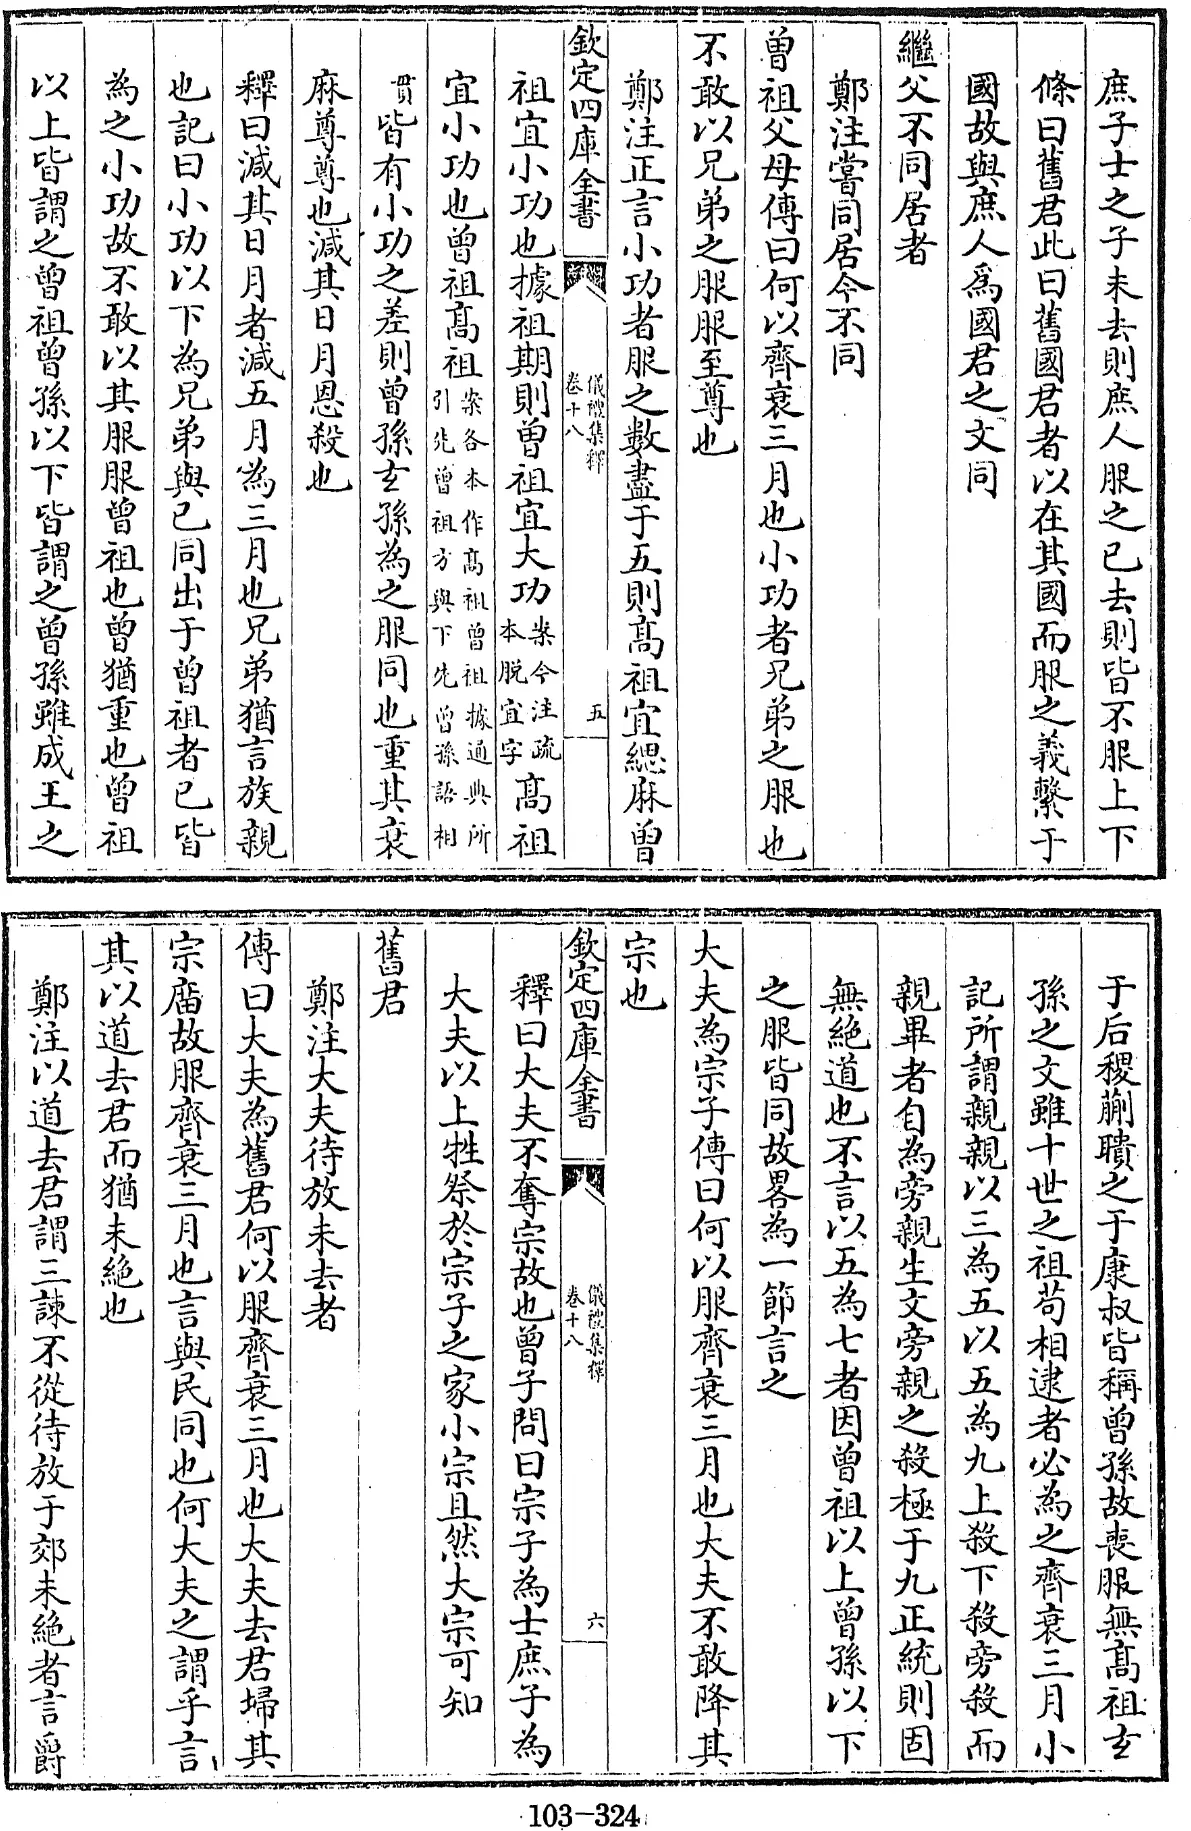 庶子士之子未去則庶人服之已去則皆不服上下
條曰舊君此曰舊國君者以在其國而服之義繫于
國故與庶人爲國君之文同
繼父不同居者
鄭注嘗同居今不同
曾祖父母傳曰何以齊衰三月也小功者兄弟之服也
不敢以兄弟之服服至尊也
鄭注正言小功者服之數盡于五則髙祖宜緦麻曾
欽定四庫全書
儀禮集釋
卷十八
五
祖宜小功也據祖期則曾祖宜大功案今注疏本脱宜字髙祖
宜小功也曾祖髙祖案各本作髙祖曾祖據通典所引先曾祖方與下先曾孫語相
貫皆有小功之差則曾孫𤣥孫為之服同也重其衰
麻尊尊也減其日月恩殺也
釋曰減其日月者減五月為三月也兄弟猶言族親
也記曰小功以下為兄弟與已同出于曾祖者已皆
為之小功故不敢以其服服曾祖也曾猶重也曾祖
以上皆謂之曾祖曾孫以下皆謂之曾孫雖成王之
于后稷蒯聵之于康叔皆稱曾孫故喪服無髙祖𤣥
孫之文雖十世之祖苟相逮者必為之齊衰三月小
記所謂親親以三為五以五為九上殺下殺旁殺而
親畢者自為旁親生文旁親之殺極于九正統則固
無絶道也不言以五為七者因曾祖以上曾孫以下
之服皆同故畧為一節言之
大夫為宗子傳曰何以服齊衰三月也大夫不敢降其
宗也
欽定四庫全書
儀禮集釋
卷十八
六
釋曰大夫不奪宗故也曾子問曰宗子為士庶子為
大夫以上牲祭於宗子之家小宗且然大宗可知
舊君
鄭注大夫待放未去者
傳曰大夫為舊君何以服齊衰三月也大夫去君埽其
宗廟故服齊衰三月也言與民同也何大夫之謂乎言
其以道去君而猶未絶也
鄭注以道去君謂三諫不從待放于郊未絶者言爵
103-324